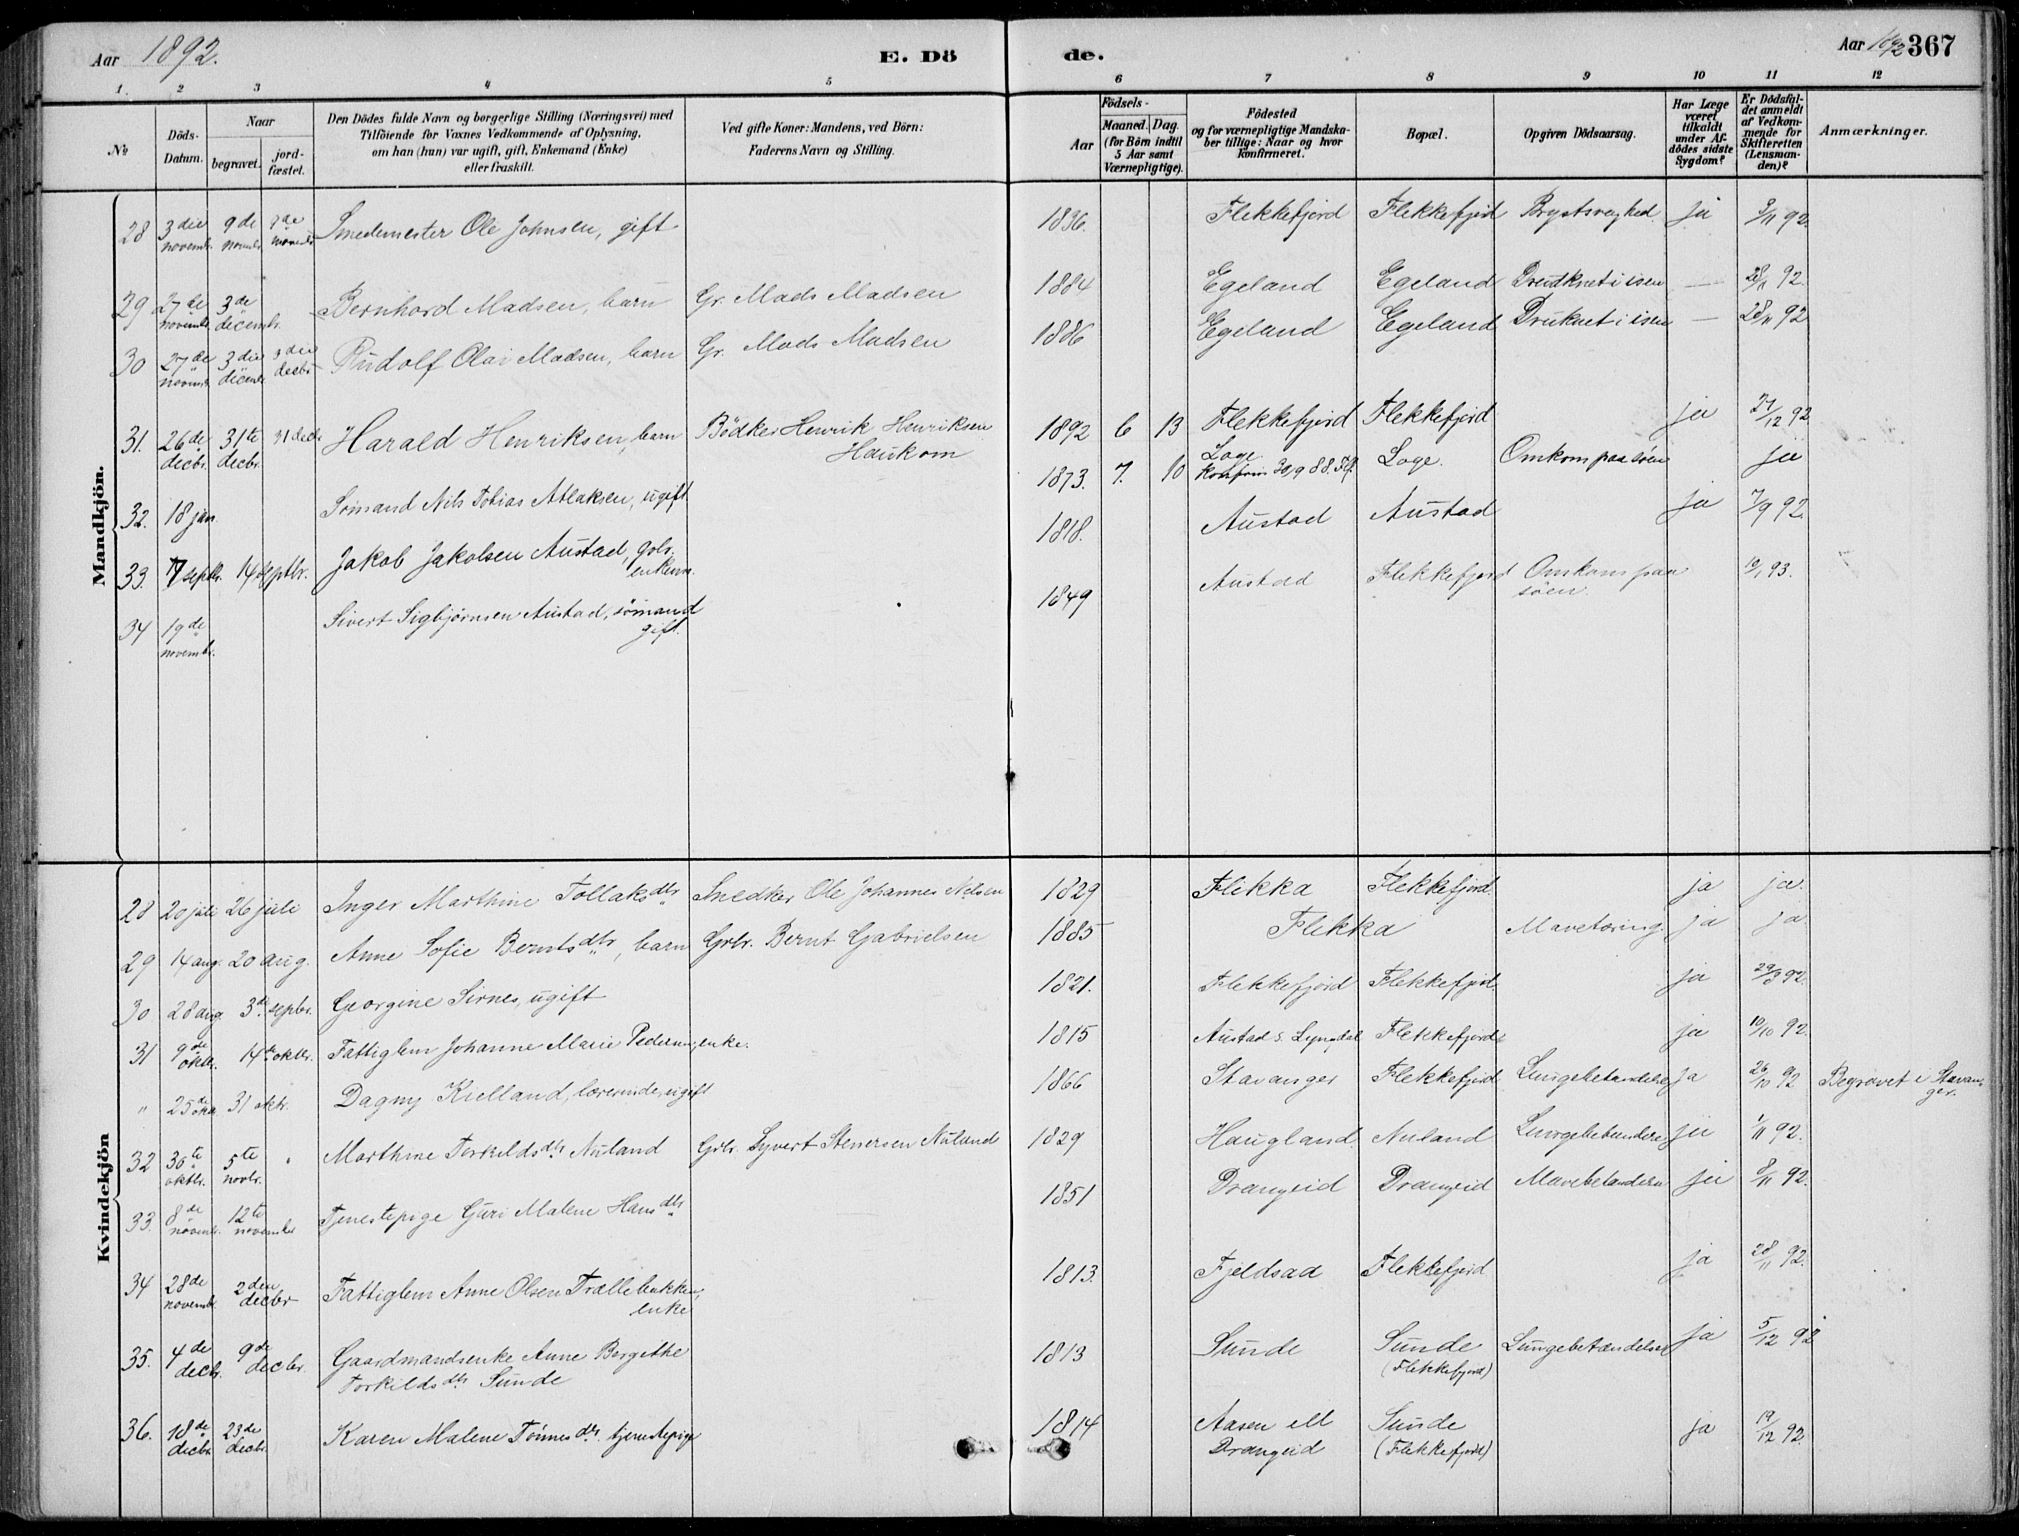 Aar 1892. E. Dö de. Aar 1892 367
1. 2 3 4 5 6 7 8 9 10 11 12
№ Döds-Datum. Naar begravet. jord-fæstet. Den Dödes fulde Navn og borgerlige Stilling (Næringsvei) med Tilföiende for Voxnes Vedkommende af Oplysning, om han (hun) var ugift, gift, Enkemand (Enke) eller fraskilt. Ved gifte Koner: Mandens, ved Börn: Faderens Navn og Stilling. Födsels- Aar Maaned. Dag. (for Börn indtil 5 Aar samt Værnepligtige). Födested og for værnepligtige Mandskaber tillige: Naar og hvor konfirmeret. Bopæl. Opgiven Dödsaarsag. Har Læge været tilkaldt under Afdödes sidste Sygdom? Er Dödsfaldet anmeldt af Vedkommende for Skifteretten (Lensmanden)? Anmærkninger.
Mandkjön.
28 3die novembr. 9de novembr. 9de novembr. Smedemester Ole Johnsen, gift 1836. Flekkefjord Flekkefjord Brystsvaghed. ja 9/11 92.
29 27de novembr. 3de decembr. Bernhard Madsen, barn Gr. Mads Madsen 1884 Egeland Egeland Druknet i isen — 28/11 92.
30 27de novembr. 3die decembr. 3die decbr. Rudolf Olai Madsen, barn Gr. Mads Madsen 1886 Egeland Egeland Druknet i isen — 28/11 92
31. 26de decbr. 31te decbr. 31 decbr. Harald Henriksen, barn Bödker Henrik Henriksen Haukom 1892 6 13 Flekkefjord Flekkefjord ja 27/12 92
32. 18 jan Sömand Nils Tobias Atlaksen, ugift 1873. 7. 10 Loge Konfirm. 30/9 88. Fl. Loge. Omkom paa söen ja
33. 7 septbr. 14 septbr. Jakob Jakobsen Austad, gbr. enkem. 1818. Austad Austad ja 7/9 92.
34 19de novembr. Sivert Sigbjörnsen Austad, sömand gift. 1849 Austad Flekkefjord Omkom paa söen. 10/1 93.
Kvindekjön
28 20 juli 26 juli Inger Marthine Tollaksdtr Snedker Ole Johannes Nilsen 1829 Flikka Flekkefjord. ja ja.
29 14 aug. 20 aug. Anne Sofie Berntsdtr, barn Grbr. Bernt Gabrielsen 1885 Flikka Mavetæring. ja ja
30 28 aug. 3de septbr. Georgine Sirnes, ugift 1821. Flekkefjord Flekkefjord ja 29/9 92.
31 9de oktbr. 14de oktbr. Fattiglem Johanne Marie Pedersen, enke. 1815 Austad s. Lyngdal Flekkefjord ja 10/10 92.
" 25de okt. 31 oktr. Dagny Kielland, lærerinde, ugift 1866 Stavanger Flekkefjord Lungebetændelse ja 26/10 92 Begravet i Stavanger.
32 30te oktbr. 5te novbr. " Marthine Terkildsdtr Nuland Grbr. Syvert Stenersen Nuland 1829 Haugland Nuland Lungebetændelse ja 1/11 92.
33. 8de novembr. 12te november Tjenestepige Guri Malene Hansdtr 1851 Drangeid Drangeid Mavebetændelse ja 8/11 92.
34 28de novembr. 2den decbr Fattiglem Anne Olsen Trællebakken, enke 1813. Fjeldsaa Flekkefjord ja 28/11 92.
35. 4de decbr. 9de decbr. Gaardmandsenke Anne Bergithe Torkildsdtr Sunde 1813 Sunde Sunde (Flekkefjord) Lungebetændelse ja 5/12 92
36. 18de decbr. 23de decbr. Karen Malene Tönnesdtr. tjenestepige 1814 Aasen ell Drangeid Sunde (Flekkefjord) ja 19/12 92.